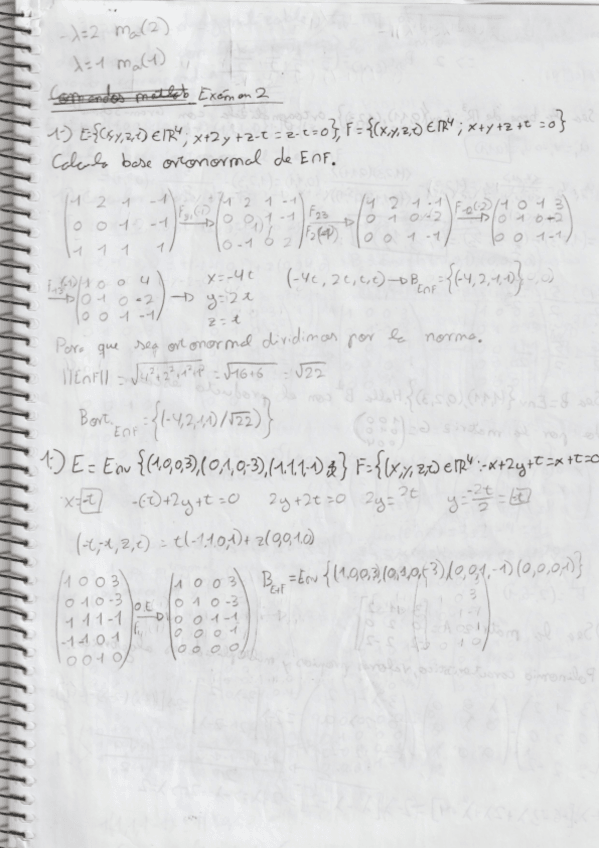 -λ=2 mₐ(2)
λ=1 mₐ(1)
Exámen 2
1-) E={(x,y,z,t)∈ℝ⁴; x+2y+z-t=z-t=0}, F={(x,y,z,t)∈ℝ⁴; x+y+z+t=0}
Calcula base ortonormal de E∩F.
(1 2 1 -1 / 0 0 1 -1 / 1 1 1 1) F₃₁(-1)→ (1 2 1 -1 / 0 0 1 -1 / 0 -1 0 2) F₂₃ F₂(-1)→ (1 2 1 -1 / 0 1 0 -2 / 0 0 1 -1) → (1 0 1 3 / 0 1 0 -2 / 0 0 1 -1)
F₁₃(-1)→ (1 0 0 4 / 0 1 0 -2 / 0 0 1 -1) → x=-4t y=2t z=t (-4t, 2t, t, t) → B E∩F = {(-4,2,1,1)}
Para que sea ortonormal dividimos por la norma.
||E∩F|| = √4²+2²+1²+1² = √16+6 = √22
Bort. E∩F = {(-4,2,1,1)/√22)}
1-) E = Env {(1,0,0,3),(0,1,0,-3),(1,1,1,-1)} F={(x,y,z,t)∈ℝ⁴: -x+2y+t=x+t=0
x=-t -(-t)+2y+t=0 2y+2t=0 2y=-2t y=-2t/2=-t
(-t,-t,z,t) = t(-1,-1,0,1)+z(0,0,1,0)
(1 0 0 3 / 0 1 0 -3 / 1 1 1 -1 / -1 -1 0 1 / 0 0 1 0) O.E. F→ (1 0 0 3 / 0 1 0 -3 / 0 0 1 -1 / 0 0 0 1 / 0 0 0 0) B E+F = Env {(1,0,0,3)(0,1,0,-3)(0,0,1,-1)(0,0,0,1)}